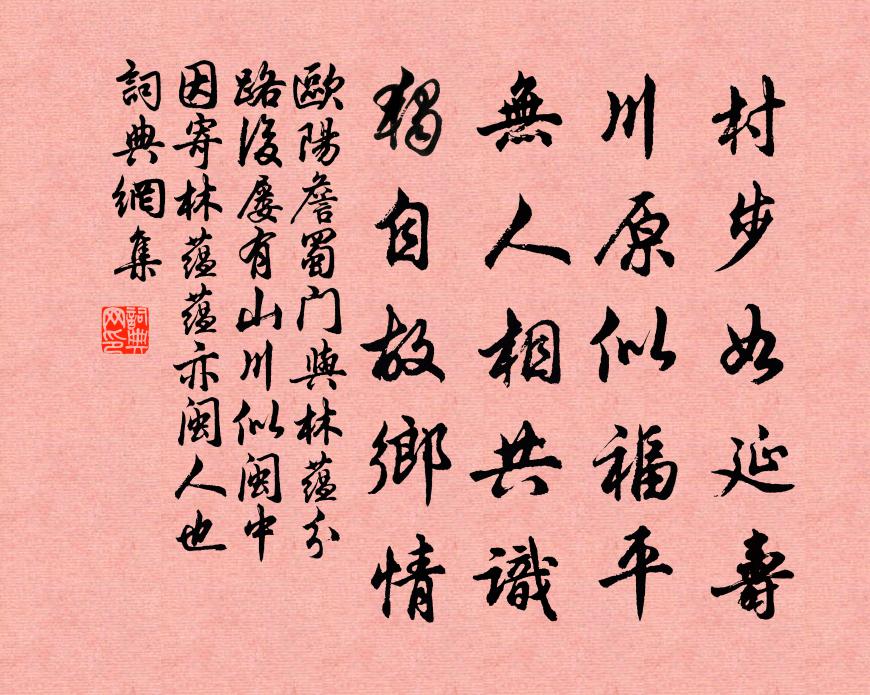 村步如延壽
川原似福平
無人相共識
獨自故鄉情
歐陽詹蜀门與林蕴分
路後屡有山川似闽中
因寄林蕴蕴亦闽人也
詞典網集
詞典
网印